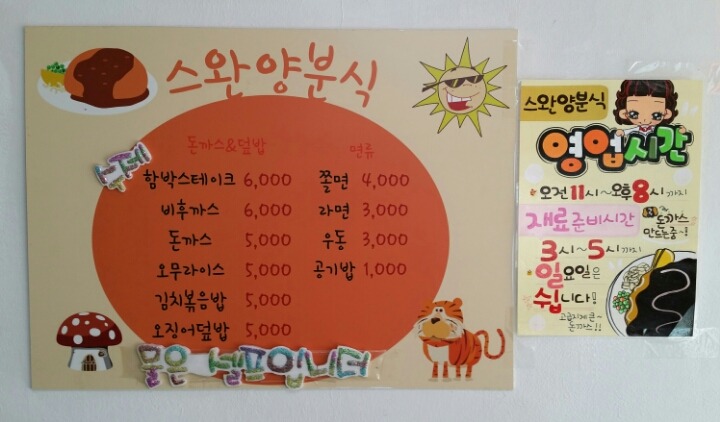 스완양분식
돈까스&덮밥
수제
함박스테이크 6,000
비후까스 6,000
돈까스 5,000
오무라이스 5,000
김치볶음밥 5,000
오징어덮밥 5,000
면류
쫄면 4,000
라면 3,000
우동 3,000
공기밥 1,000
물은 셀프입니다
스완양분식
영업시간
오전 11시~오후 8시까지
재료준비시간
돈까스
만드는중~!
3시~5시까지
일요일은
쉽니다!
돈까스!!